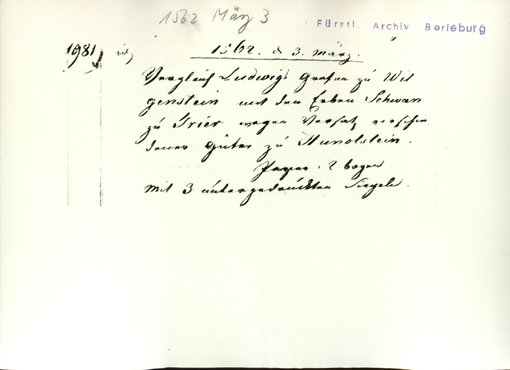 1562 März 3
Fürstl. Archiv Berleburg
1981
1562. d 3. März.
Vergleich Ludwigs Grafen zu Wit
genstein mit den Erben Schwan
zu Trier wegen Versatz verschie
dener Güter zu Hunolstein.
Papier. 2 bogen
mit 3 untergedruckten Siegeln.